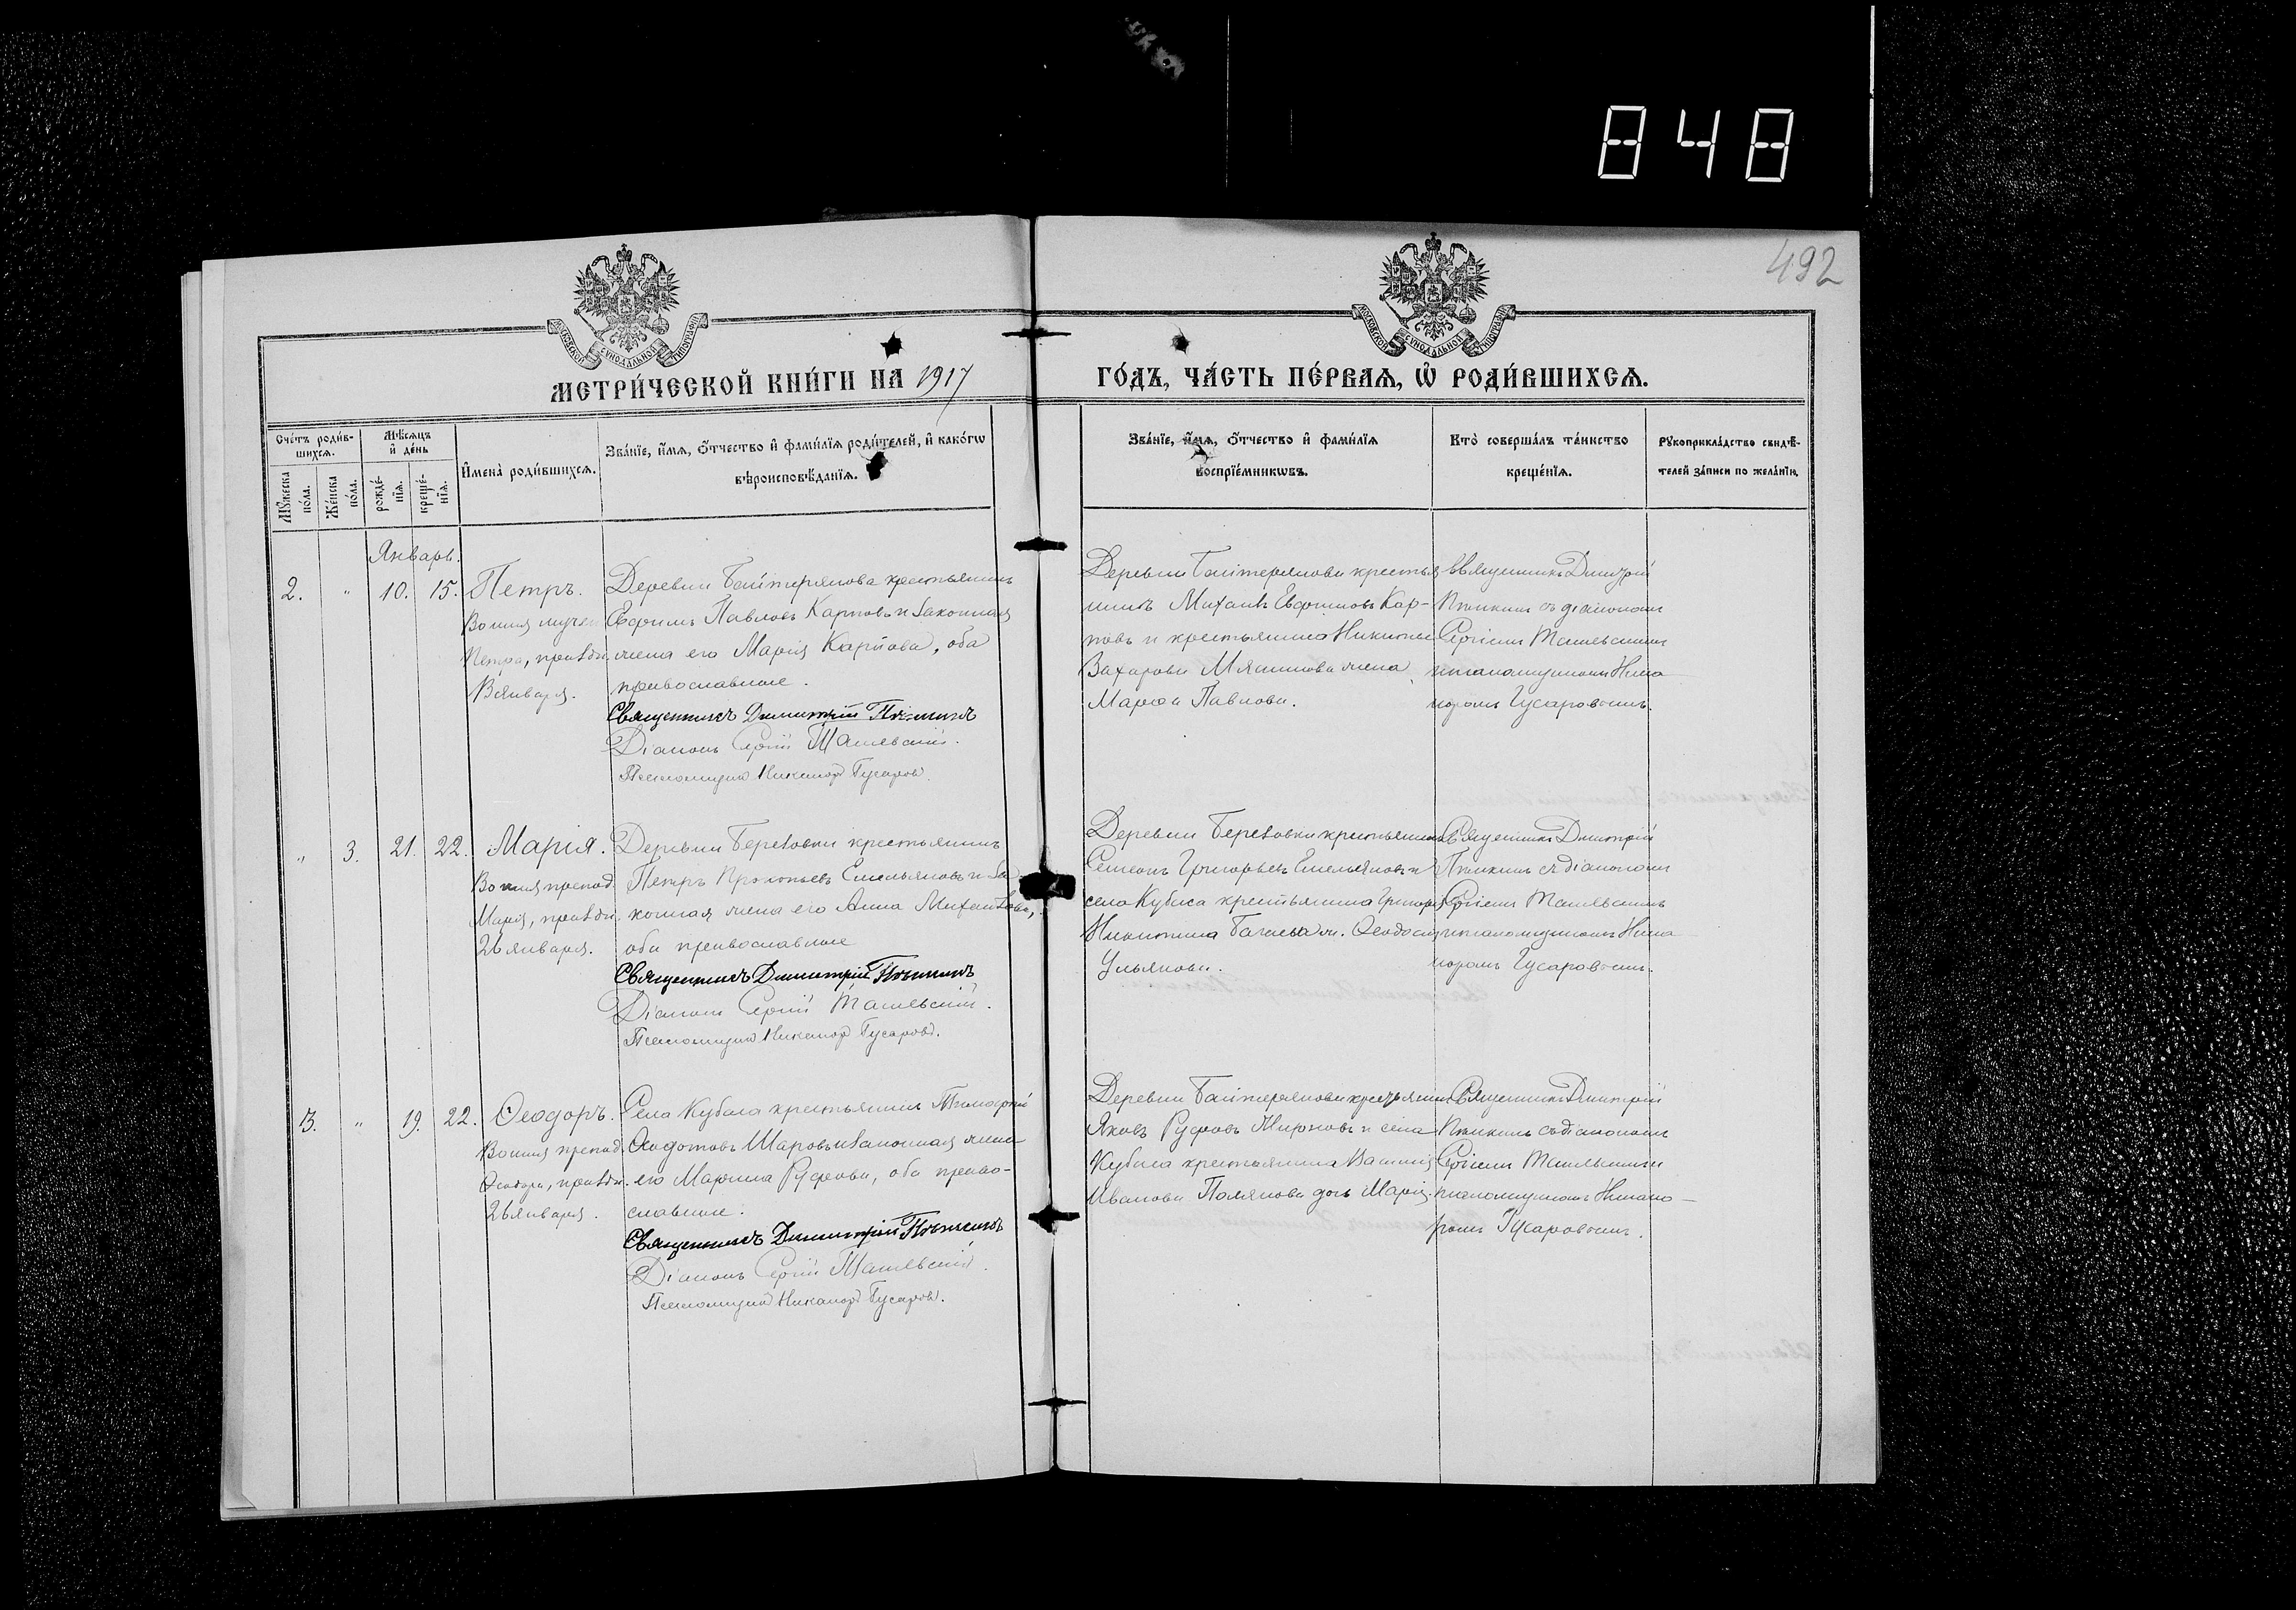 848
492
МОСКОВСКОЙ СѴНОДАЛЬНОЙ ТИПОГРАФІИ
МОСКОВСКОЙ СѴНОДАЛЬНОЙ ТИПОГРАФІИ
МЕТРИ́ЧЕСКОЙ КНИ́ГИ НА 1917
ГО́ДЪ, ЧА́СТЬ ПЕ́РВАѦ, Ѽ РОДИ́ВШИХСѦ.
Сче́тъ роди́в-
шихсѧ.
Мꙋ́жеска
по́ла.
Же́нска
по́ла.
Мѣ́сѧцъ
и҆ де́нь
рожде́-
нїѧ.
креще́-
нїѧ.
И҆мена̀ роди́вшихсѧ.
Зва́нїе, и҆́мѧ, ѻ҆́тчество и҆ фами́лїѧ роди́телей, и҆ како́гѡ
вѣроисповѣ́данїѧ.
Зва́нїе, и҆́мѧ, ѻ҆́тчество и҆ фами́лїѧ
воспрїе́мникѡвъ.
Кто̀ соверша́лъ та́инство
креще́нїѧ.
Рꙋкоприкла́дство свидѣ́-
телей за́писи по жела́нїю.
Январь.
2. " 10. 15. Петръ.
Во имя мучен
Петра, празди.
13 января.
Деревни Байтерякова крестьянинъ
Ефримъ Павловъ Карповъ и законная
жена его Марія Карпова, оба
православные.
Священникъ Димитрій
Діаконъ Сергій Ташевскій.
Псаломщикъ Никаноръ Гусаровъ.
Деревни Байтерякова крестья
нинъ Михаилъ Евфимовъ Кар-
повъ и крестьянина Никиты
Захарова жена
Марѳа Павлова.
Священникъ Димитрій
съ діакономъ
Сергіемъ Ташевскимъ
псаломщикомъ Ника
норомъ Гусаровымъ.
" 3. 21. 22. Марія.
Во имя препод.
Маріи, празди.
26 января.
Деревни Березовки крестьянинъ
Петръ Прокопьевъ Емельяновъ и за
конная жена его Анна Михайлова,
оба православные
Священникъ Димитрій
Діаконъ Сергій Ташевскій.
Псаломщикъ Никаноръ Гусаровъ.
Деревни Березовки крестьянинъ
Семенъ Григорьевъ Емельяновъ и
села Кубаса крестьянина Григорія
Никитина ж. Ѳеодосія
Ульянова.
Священникъ Димитрій
съ діакономъ
Сергіемъ Ташевскимъ
псаломщикомъ Ника
норомъ Гусаровымъ.
3. " 19. 22. Ѳеодоръ.
Во имя препод.
Ѳеодора, празди.
26 января.
Села Кубаса крестьянинъ Тимоѳей
Ѳедотовъ Шаровъ и законная жена
его Марѳина Руфова, оба право-
славные.
Священникъ Димитрій
Діаконъ Сергій Ташевскій.
Псаломщикъ Никаноръ Гусаровъ.
Деревни Байтерякова крестьянинъ
Яковъ Руфовъ Мироновъ и села
Кубаса крестьянина Василія
Иванова Полякова дочь Марія.
Священникъ Димитрій
съ діакономъ
Сергіемъ Ташевскимъ
псаломщикомъ Никано-
ромъ Гусаровымъ.